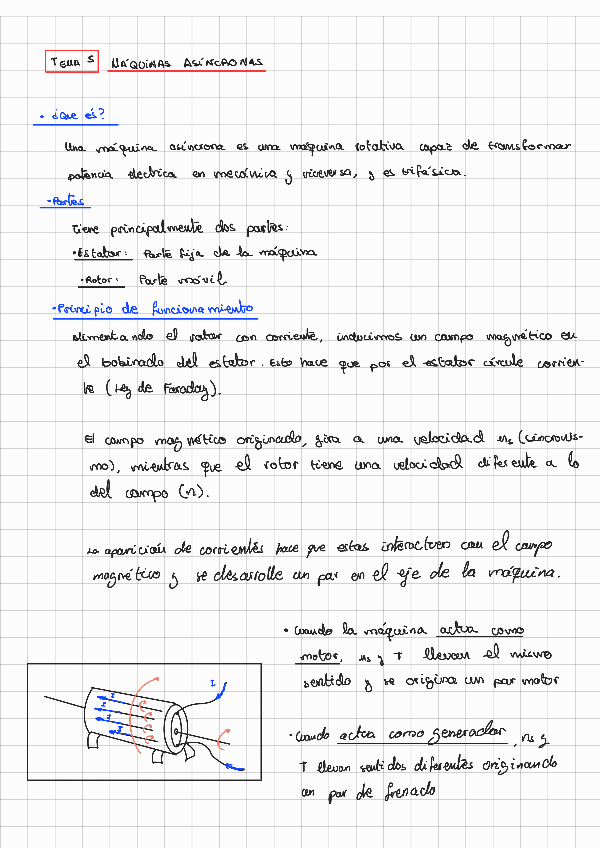 TEMA 5 MÁQUINAS ASÍNCRONAS
• ¿Que és?
Una máquina asíncrona es una máquina rotativa capaz de transformar
potencia electrica en mecánica y viceversa, y es trifásica.
• Partes
Tiene principalmente dos partes:
• Estator: Parte fija de la máquina
• Rotor: Parte móvil
• Principio de funcionamiento
Alimentando el rotor con corriente, inducimos un campo magnético en
el bobinado del estator. Esto hace que por el estator circule corrien-
te (Ley de Faraday).
El campo magnético originado, gira a una velocidad ns (cincronis-
mo), mientras que el rotor tiene una velocidad diferente a lo
del campo (n).
La aparición de corrientes hace que estas interactuen con el campo
magnético y se desarrolle un par en el eje de la máquina.
• Cuando la máquina actua como
motor, ns y T llevan el mismo
sentido y se origina un par motor
• Cuando actua como generador, ns y
T llevan sentidos diferentes originando
un par de frenado
I
I
I
I
I